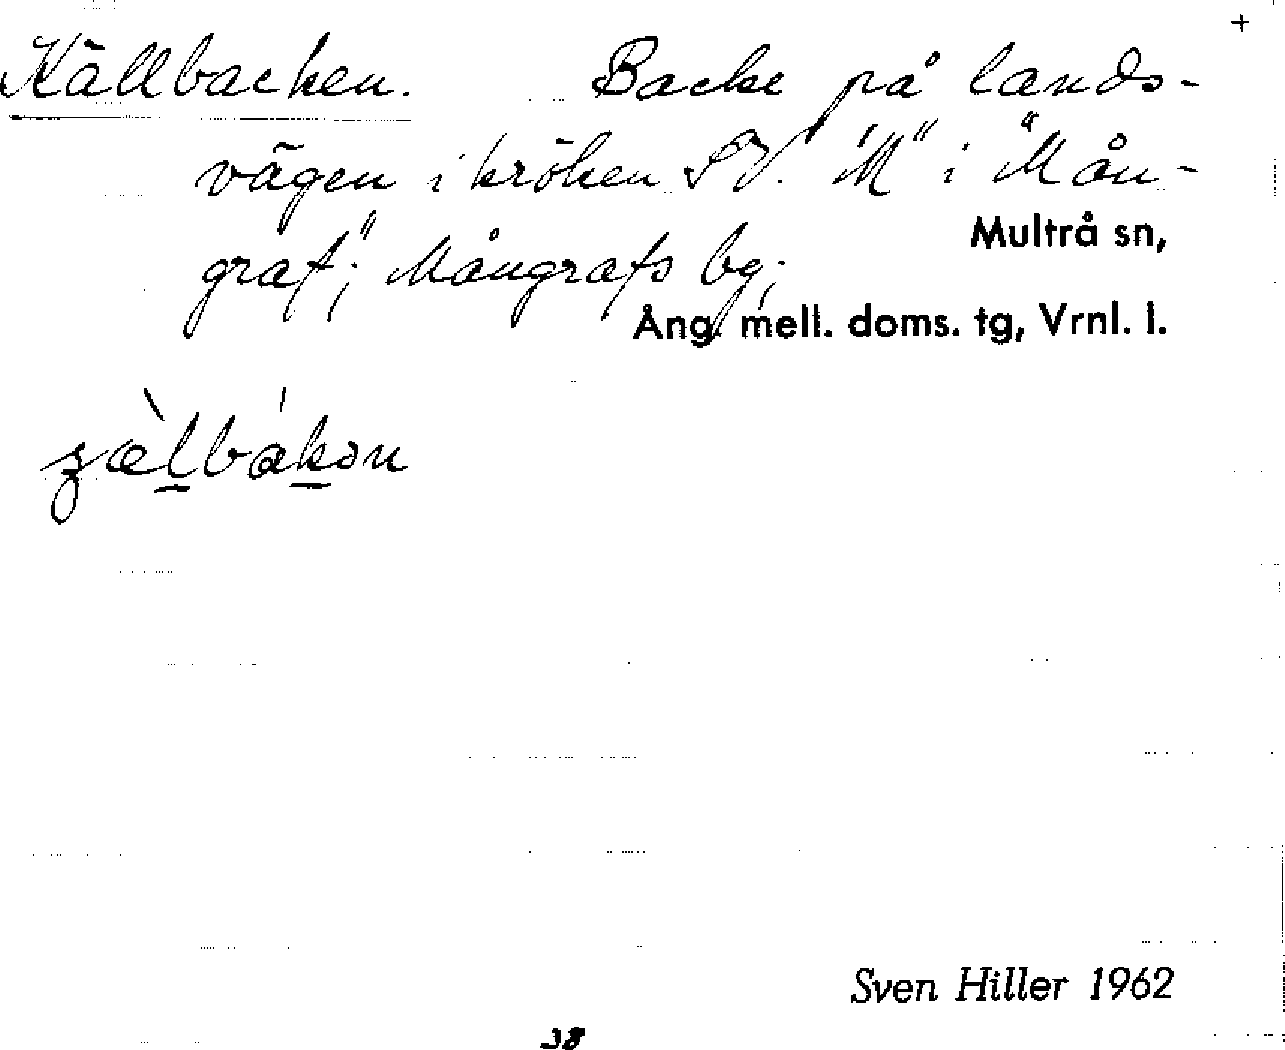 +
Källbacken. Backe på lands-
vägen i kröken SV. "M" i "Mån-
graf"; Mångrafs bg;
Multrå sn,
Ång. mell. doms. tg, Vrnl. l.
Sven Hiller 1962
38